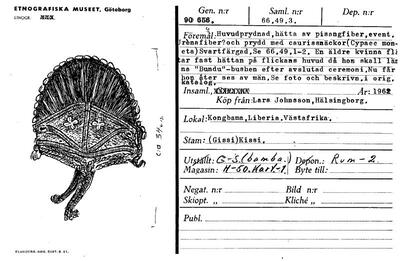 ETNOGRAFISKA MUSEET, Göteborg
Gen. n:r
Saml. n:r
90 658.
66,49,3.
Föremål: Huvudprydnad, hätta av pisangfiber, event.
fiber och prydd med caurisnäckor(Cyprec mon-
ets)Svartfärgad, Se 66,49,1-2. En äldre kvinna fl
tar fast hättan på flickans huvud då hon skall läm
na "Bundu"-bushen efter avslutad ceremoni, Nu får
hon åter ses av män. Se foto och beskrivn. i orig.
katalog.
Insaml.
År: 1962
Köp från: Lars Johnsson, Hälsingborg.
Lokal: Kongbama, Liberia, Västafrika.
Stam: (Gissi)Kissi.
Utställt: G-S.(bamba.) Depon.: Rum-2.
Magasin: H-50. Hart-1. Byte till:
Negat. n:r
Bild n:r
Skiopt. »
Kliché »
Publ.